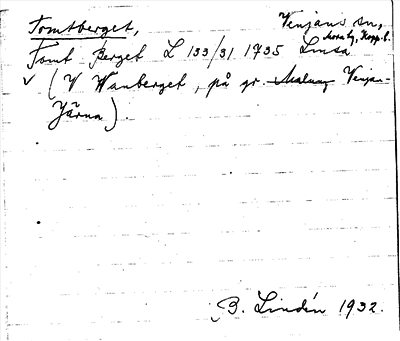 Tomtberget,
Venjans sn,
Mora tg, Kopp. l.
Tomt Berget L 133/31 1735 Lmsa
✓ (V Wanberget, på gr. Malung Venjan-
Järna).
B. Lindén 1932.